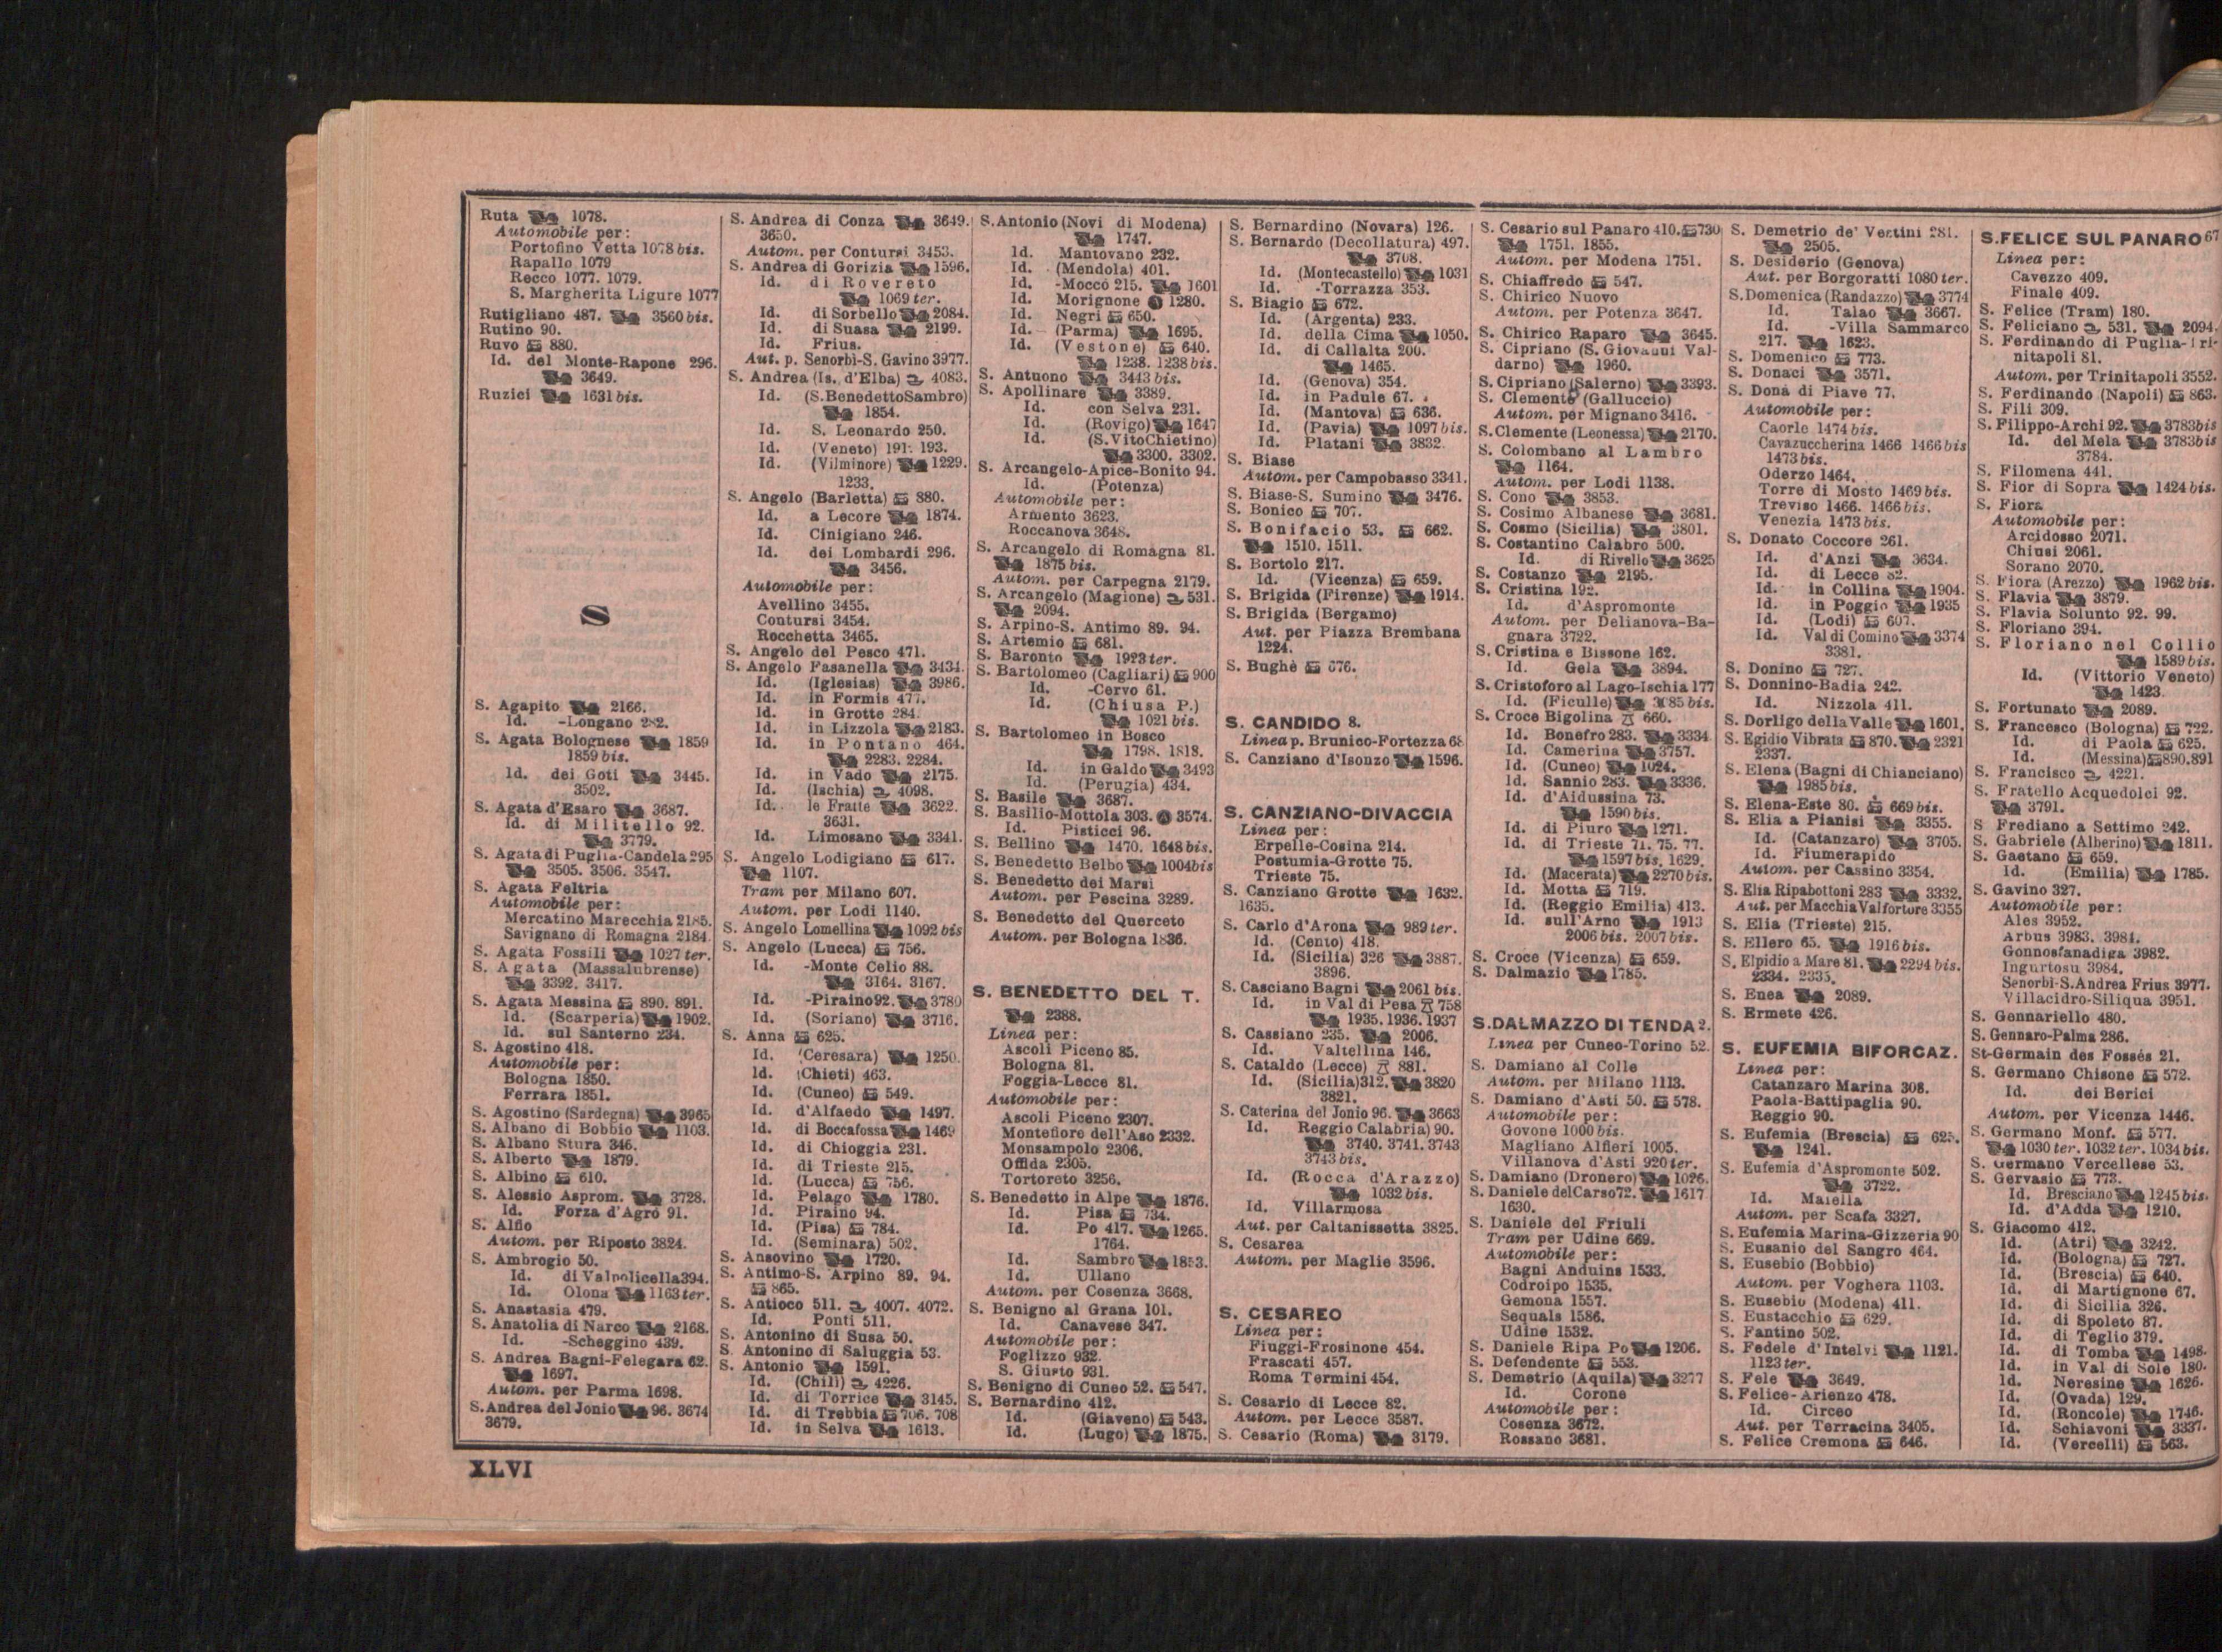 Ruta 1078.
Automobile per:
Portofino Vetta 1078 bis.
Rapallo 1079
Recco 1077. 1079.
S. Margherita Ligure 1077
Rutigliano 487. 3560 bis.
Rutino 90.
Ruvo 880.
Id. del Monte-Rapone 296.
3649.
Ruzici 1631 bis.
S
S. Agapito 2166.
Id. -Longano 282.
S. Agata Bolognese 1859
1859 bis.
Id. dei Goti 3445.
3502.
S. Agata d'Esaro 3687.
Id. di Militello 92.
3779.
S. Agata di Puglia-Candela 295
3505. 3506. 3547.
S. Agata Feltria
Automobile per:
Mercatino Marecchia 2185.
Savignano di Romagna 2184.
S. Agata Fossili 1027 ter.
S. Agata (Massalubrense)
3392. 3417.
S. Agata Messina 890. 891.
Id. (Scarperia) 1902.
Id. sul Santerno 234.
S. Agostino 418.
Automobile per:
Bologna 1850.
Ferrara 1851.
S. Agostino (Sardegna) 3965
S. Albano di Bobbio 1103.
S. Albano Stura 346.
S. Alberto 1879.
S. Albino 610.
S. Alessio Asprom. 3728.
Id. Forza d'Agrò 91.
S. Alfio
Autom. per Riposto 3824.
S. Ambrogio 50.
Id. di Valpolicella 394.
Id. Olona 1163 ter.
S. Anastasia 479.
S. Anatolia di Narco 2168.
Id. -Scheggino 439.
S. Andrea Bagni-Felegara 62.
1697.
Autom. per Parma 1698.
S. Andrea del Jonio 96. 3674
3679.
S. Andrea di Conza 3649.
3650.
Autom. per Contursi 3453.
S. Andrea di Gorizia 1596.
Id. di Rovereto
1069 ter.
Id. di Sorbello 2084.
Id. di Suasa 2199.
Id. Frius.
Aut. p. Senorbì-S. Gavino 3977.
S. Andrea (Is. d'Elba) 4083.
Id. (S. Benedetto Sambro)
1854.
Id. S. Leonardo 250.
Id. (Veneto) 191. 193.
Id. (Vilminore) 1229.
1233.
S. Angelo (Barletta) 880.
Id. a Lecore 1874.
Id. Cinigiano 246.
Id. dei Lombardi 296.
3456.
Automobile per:
Avellino 3455.
Contursi 3454.
Rocchetta 3465.
S. Angelo del Pesco 471.
S. Angelo Fasanella 3434.
Id. (Iglesias) 3986.
Id. in Formis 477.
Id. in Grotte 284.
Id. in Lizzola 2183.
Id. in Pontano 464.
2283. 2284.
Id. in Vado 2175.
Id. (Ischia) 4098.
Id. le Fratte 3622.
3631.
Id. Limosano 3341.
S. Angelo Lodigiano 617.
1107.
Tram per Milano 607.
Autom. per Lodi 1140.
S. Angelo Lomellina 1092 bis
S. Angelo (Lucca) 756.
Id. -Monte Celio 88.
3164. 3167.
Id. -Piraino 92. 3780
Id. (Soriano) 3716.
S. Anna 625.
Id. (Ceresara) 1250.
Id. (Chieti) 463.
Id. (Cuneo) 549.
Id. d'Alfaedo 1497.
Id. di Boccafossa 1469
Id. di Chioggia 231.
Id. di Trieste 215.
Id. (Lucca) 756.
Id. Pelago 1780.
Id. Piraino 94.
Id. (Pisa) 784.
Id. (Seminara) 502.
S. Ansovino 1720.
S. Antimo-S. Arpino 89. 94.
865.
S. Antioco 511. 4007. 4072.
Id. Ponti 511.
S. Antonino di Susa 50.
S. Antonino di Saluggia 53.
S. Antonio 1591.
Id. (Chilì) 4226.
Id. di Torrice 3145.
Id. di Trebbia 706. 708
Id. in Selva 1613.
S. Antonio (Novi di Modena)
1747.
Id. Mantovano 232.
Id. (Mendola) 401.
Id. -Moccò 215. 1601
Id. Morignone 1280.
Id. Negri 650.
Id. (Parma) 1695.
Id. (Vestone) 640.
1238. 1238 bis.
S. Antuono 3443 bis.
S. Apollinare 3389.
Id. con Selva 231.
Id. (Rovigo) 1647
Id. (S. Vito Chietino)
3300. 3302.
S. Arcangelo-Apice-Bonito 94.
Id. (Potenza)
Automobile per:
Armento 3623.
Roccanova 3648.
S. Arcangelo di Romagna 81.
1875 bis.
Autom. per Carpegna 2179.
S. Arcangelo (Magione) 531.
2094.
S. Arpino-S. Antimo 89. 94.
S. Artemio 681.
S. Baronto 1923 ter.
S. Bartolomeo (Cagliari) 900
Id. -Cervo 61.
Id. (Chiusa P.)
1021 bis.
S. Bartolomeo in Bosco
1798. 1818.
Id. in Galdo 3493
Id. (Perugia) 434.
S. Basile 3687.
S. Basilio-Mottola 303. 3574.
Id. Pisticci 96.
S. Bellino 1470. 1648 bis.
S. Benedetto Belbo 1004 bis
S. Benedetto dei Marsi
Autom. per Pescina 3289.
S. Benedetto del Querceto
Autom. per Bologna 1836.
S. BENEDETTO DEL T.
2388.
Linea per:
Ascoli Piceno 85.
Bologna 81.
Foggia-Lecce 81.
Automobile per:
Ascoli Piceno 2307.
Montefiore dell'Aso 2332.
Monsampolo 2306.
Offida 2305.
Tortoreto 3256.
S. Benedetto in Alpe 1876.
Id. Pisa 734.
Id. Po 417. 1265.
1764.
Id. Sambro 1853.
Id. Ullano
Autom. per Cosenza 3668.
S. Benigno al Grana 101.
Id. Canavese 347.
Automobile per:
Foglizzo 932.
S. Giusto 931.
S. Benigno di Cuneo 52. 547.
S. Bernardino 412.
Id. (Giaveno) 543.
Id. (Lugo) 1875.
S. Bernardino (Novara) 126.
S. Bernardo (Decollatura) 497.
3708.
Id. (Montecastello) 1031
Id. -Torrazza 353.
S. Biagio 672.
Id. (Argenta) 233.
Id. della Cima 1050.
Id. di Callalta 200.
1465.
Id. (Genova) 354.
Id. in Padule 67.
Id. (Mantova) 636.
Id. (Pavia) 1097 bis.
Id. Platani 3832.
S. Biase
Autom. per Campobasso 3341.
S. Biase-S. Sumino 3476.
S. Bonico 707.
S. Bonifacio 53. 662.
1510. 1511.
S. Bortolo 217.
Id. (Vicenza) 659.
S. Brigida (Firenze) 1914.
S. Brigida (Bergamo)
Aut. per Piazza Brembana
1224.
S. Bughè 676.
S. CANDIDO 8.
Linea p. Brunico-Fortezza 68
S. Canziano d'Isonzo 1596.
S. CANZIANO-DIVACCIA
Linea per:
Erpelle-Cosina 214.
Postumia-Grotte 75.
Trieste 75.
S. Canziano Grotte 1632.
1635.
S. Carlo d'Arona 989 ter.
Id. (Cento) 418.
Id. (Sicilia) 326 3887.
3896.
S. Casciano Bagni 2061 bis.
Id. in Val di Pesa 758
1935. 1936. 1937
S. Cassiano 235. 2006.
Id. Valtellina 146.
S. Cataldo (Lecce) 881.
Id. (Sicilia) 312. 3820
3821.
S. Caterina del Jonio 96. 3663
Id. Reggio Calabria) 90.
3740. 3741. 3743
3743 bis.
Id. (Rocca d'Arazzo)
1032 bis.
Id. Villarmosa
Aut. per Caltanissetta 3825.
S. Cesarea
Autom. per Maglie 3596.
S. CESAREO
Linea per:
Fiuggi-Frosinone 454.
Frascati 457.
Roma Termini 454.
S. Cesario di Lecce 82.
Autom. per Lecce 3587.
S. Cesario (Roma) 3179.
S. Cesario sul Panaro 410. 730
1751. 1855.
Autom. per Modena 1751.
S. Chiaffredo 547.
S. Chirico Nuovo
Autom. per Potenza 3647.
S. Chirico Raparo 3645.
S. Cipriano (S. Giovanni Val-
darno) 1960.
S. Cipriano (Salerno) 3393.
S. Clemente (Galluccio)
Autom. per Mignano 3416.
S. Clemente (Leonessa) 2170.
S. Colombano al Lambro
1164.
Autom. per Lodi 1138.
S. Cono 3853.
S. Cosimo Albanese 3681.
S. Cosmo (Sicilia) 3801.
S. Costantino Calabro 500.
Id. di Rivello 3625
S. Costanzo 2195.
S. Cristina 192.
Id. d'Aspromonte
Autom. per Delianova-Ba-
gnara 3722.
S. Cristina e Bissone 162.
Id. Gela 3894.
S. Cristoforo al Lago-Ischia 177
Id. (Ficulle) 3085 bis.
S. Croce Bigolina 660.
Id. Bonefro 283. 3334
Id. Camerina 3757.
Id. (Cuneo) 1024.
Id. Sannio 283. 3336.
Id. d'Aidussina 73.
1590 bis.
Id. di Piuro 1271.
Id. di Trieste 71. 75. 77.
1597 bis. 1629.
Id. (Macerata) 2270 bis.
Id. Motta 719.
Id. (Reggio Emilia) 413.
Id. sull'Arno 1913
2006 bis. 2007 bis.
S. Croce (Vicenza) 659.
S. Dalmazio 1785.
S. DALMAZZO DI TENDA 2.
Linea per Cuneo-Torino 52.
S. Damiano al Colle
Autom. per Milano 1113.
S. Damiano d'Asti 50. 578.
Automobile per:
Govone 1000 bis.
Magliano Alfieri 1005.
Villanova d'Asti 920 ter.
S. Damiano (Dronero) 1026.
S. Daniele del Carso 72. 1617
1630.
S. Daniele del Friuli
Tram per Udine 669.
Automobile per:
Bagni Anduins 1533.
Codroipo 1535.
Gemona 1557.
Sequals 1586.
Udine 1532.
S. Daniele Ripa Po 1206.
S. Defendente 553.
S. Demetrio (Aquila) 3277
Id. Corone
Automobile per:
Cosenza 3672.
Rossano 3681.
S. Demetrio de' Vestini 281.
2505.
S. Desiderio (Genova)
Aut. per Borgoratti 1080 ter.
S. Domenica (Randazzo) 3774
Id. Talao 3667.
Id. -Villa Sammarco
217. 1623.
S. Domenico 773.
S. Donaci 3571.
S. Donà di Piave 77.
Automobile per:
Caorle 1474 bis.
Cavazuccherina 1466 1466 bis
1473 bis.
Oderzo 1464.
Torre di Mosto 1469 bis.
Treviso 1466. 1466 bis.
Venezia 1473 bis.
S. Donato Coccore 261.
Id. d'Anzi 3634.
Id. di Lecce 82.
Id. in Collina 1904.
Id. in Poggio 1935
Id. (Lodi) 607.
Id. Val di Comino 3374
3381.
S. Donino 727.
S. Donnino-Badia 242.
Id. Nizzola 411.
S. Dorligo della Valle 1601.
S. Egidio Vibrata 870. 2321
2337.
S. Elena (Bagni di Chianciano)
1985 bis.
S. Elena-Este 80. 669 bis.
S. Elia a Pianisi 3355.
Id. (Catanzaro) 3705.
Id. Fiumerapido
Autom. per Cassino 3354.
S. Elia Ripabottoni 283 3332.
Aut. per Macchia Valfortore 3355
S. Elia (Trieste) 215.
S. Ellero 65. 1916 bis.
S. Elpidio a Mare 81. 2294 bis.
2334. 2335.
S. Enea 2089.
S. Ermete 426.
S. EUFEMIA BIFORCAZ.
Linea per:
Catanzaro Marina 308.
Paola-Battipaglia 90.
Reggio 90.
S. Eufemia (Brescia) 625.
1241.
S. Eufemia d'Aspromonte 502.
3722.
Id. Maiella
Autom. per Scafa 3327.
S. Eufemia Marina-Gizzeria 90
S. Eusanio del Sangro 464.
S. Eusebio (Bobbio)
Autom. per Voghera 1103.
S. Eusebio (Modena) 411.
S. Eustacchio 629.
S. Fantino 502.
S. Fedele d'Intelvi 1121.
1123 ter.
S. Fele 3649.
S. Felice-Arienzo 478.
Id. Circeo
Aut. per Terracina 3405.
S. Felice Cremona 646.
S. FELICE SUL PANARO 67
Linea per:
Cavezzo 409.
Finale 409.
S. Felice (Tram) 180.
S. Feliciano 531. 2094.
S. Ferdinando di Puglia-Tri-
nitapoli 81.
Autom. per Trinitapoli 3552.
S. Ferdinando (Napoli) 863.
S. Fili 309.
S. Filippo-Archi 92. 3783 bis
Id. del Mela 3783 bis
3784.
S. Filomena 441.
S. Fior di Sopra 1424 bis.
S. Fiora
Automobile per:
Arcidosso 2071.
Chiusi 2061.
Sorano 2070.
S. Fiora (Arezzo) 1962 bis.
S. Flavia 3879.
S. Flavia Solunto 92. 99.
S. Floriano 394.
S. Floriano nel Collio
1589 bis.
Id. (Vittorio Veneto)
1423.
S. Fortunato 2089.
S. Francesco (Bologna) 722.
Id. di Paola 625.
Id. (Messina) 890. 891
S. Francisco 4221.
S. Fratello Acquedolci 92.
3791.
S Frediano a Settimo 242.
S. Gabriele (Alberino) 1811.
S. Gaetano 659.
Id. (Emilia) 1785.
S. Gavino 327.
Automobile per:
Ales 3952.
Arbus 3983. 3984.
Gonnosfanadiga 3982.
Ingurtosu 3984.
Senorbì-S. Andrea Frius 3977.
Villacidro-Siliqua 3951.
S. Gennariello 480.
S. Gennaro-Palma 286.
St-Germain des Fossés 21.
S. Germano Chisone 572.
Id. dei Berici
Autom. per Vicenza 1446.
S. Germano Monf. 577.
1030 ter. 1032 ter. 1034 bis.
S. Germano Vercellese 53.
S. Gervasio 773.
Id. Bresciano 1245 bis.
Id. d'Adda 1210.
S. Giacomo 412.
Id. (Atri) 3242.
Id. (Bologna) 727.
Id. (Brescia) 640.
Id. di Martignone 67.
Id. di Sicilia 326.
Id. di Spoleto 87.
Id. di Teglio 379.
Id. di Tomba 1498.
Id. in Val di Sole 180.
Id. Neresine 1626.
Id. (Ovada) 129.
Id. (Roncole) 1746.
Id. Schiavoni 3337.
Id. (Vercelli) 563.
XLVI